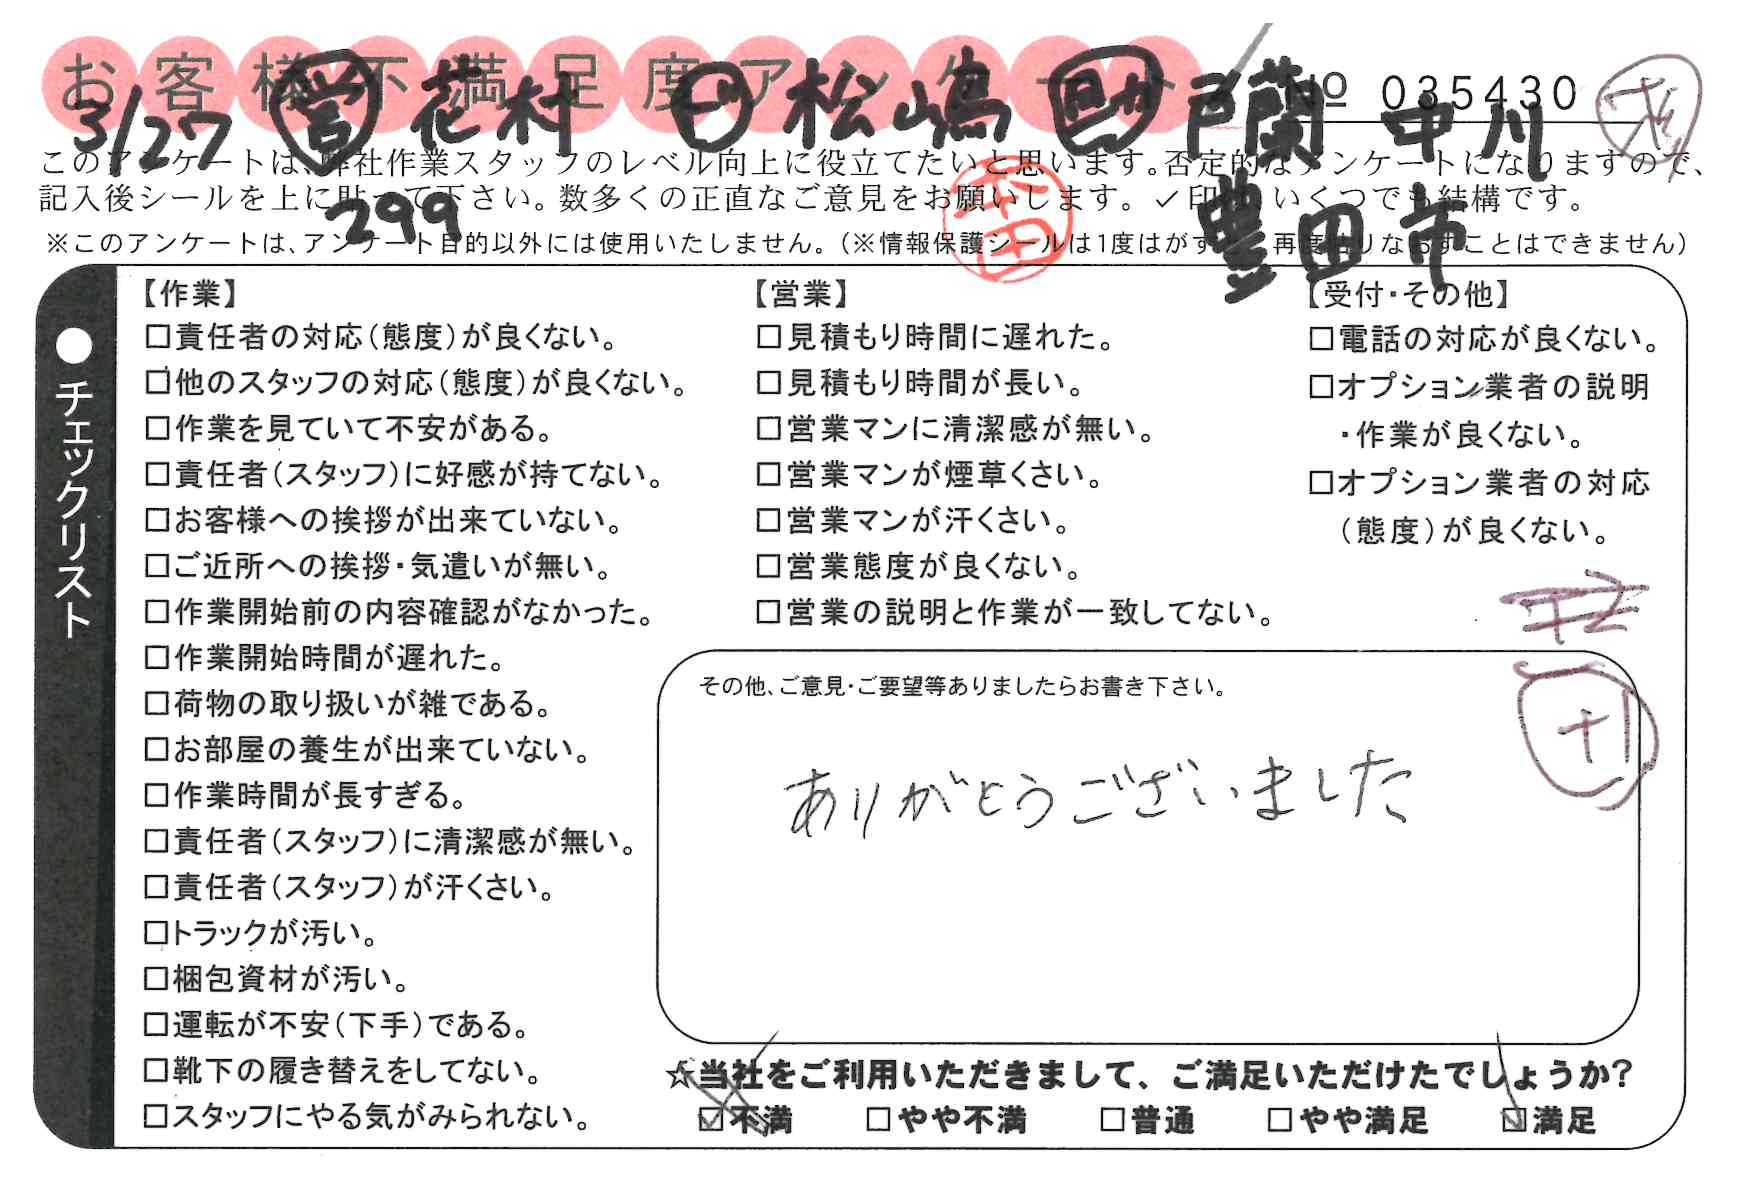 お客様不満足度アンケート № 035430
3/27 営 花村 松嶋 助 戸蘭 中川
このアンケートは、弊社作業スタッフのレベル向上に役立てたいと思います。否定的なアンケートになりますので、
記入後シールを上に貼って下さい。数多くの正直なご意見をお願いします。✓印はいくつでも結構です。
299 本田 豊田市
※このアンケートは、アンケート目的以外には使用いたしません。(※情報保護シールは1度はがすと、再度貼りなおすことはできません)
●チェックリスト
【作業】
□責任者の対応(態度)が良くない。
□他のスタッフの対応(態度)が良くない。
□作業を見ていて不安がある。
□責任者(スタッフ)に好感が持てない。
□お客様への挨拶が出来ていない。
□ご近所への挨拶・気遣いが無い。
□作業開始前の内容確認がなかった。
□作業開始時間が遅れた。
□荷物の取り扱いが雑である。
□お部屋の養生が出来ていない。
□作業時間が長すぎる。
□責任者(スタッフ)に清潔感が無い。
□責任者(スタッフ)が汗くさい。
□トラックが汚い。
□梱包資材が汚い。
□運転が不安(下手)である。
□靴下の履き替えをしてない。
□スタッフにやる気がみられない。
【営業】
□見積もり時間に遅れた。
□見積もり時間が長い。
□営業マンに清潔感が無い。
□営業マンが煙草くさい。
□営業マンが汗くさい。
□営業態度が良くない。
□営業の説明と作業が一致してない。
【受付・その他】
□電話の対応が良くない。
□オプション業者の説明
・作業が良くない。
□オプション業者の対応
(態度)が良くない。
その他、ご意見・ご要望等ありましたらお書き下さい。
ありがとうございました
☆当社をご利用いただきまして、ご満足いただけたでしょうか?
☑不満 □やや不満 □普通 □やや満足 ☑満足